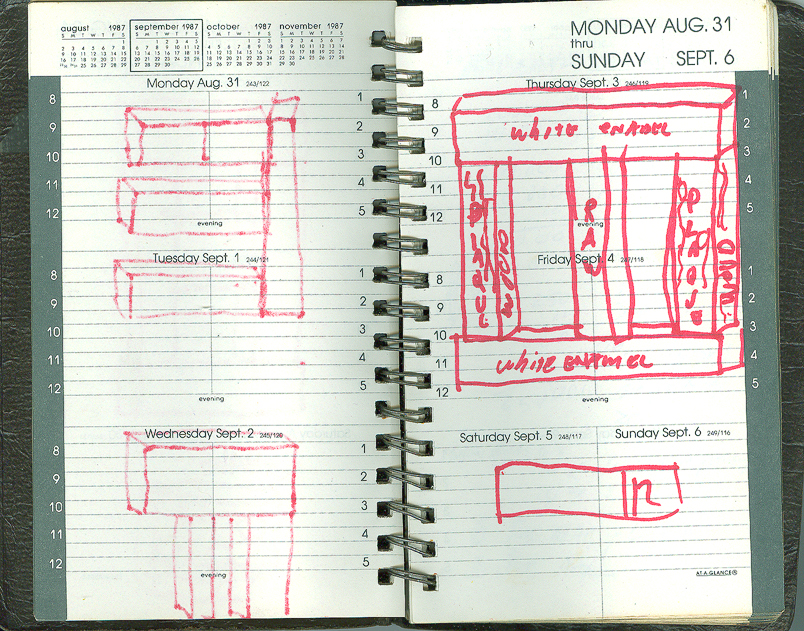 august 1987
S M T W T F S
1
2 3 4 5 6 7 8
9 10 11 12 13 14 15
16 17 18 19 20 21 22
25 26 27 28 29
september 1987
S M T W T F S
1 2 3 4 5
6 7 8 9 10 11 12
13 14 15 16 17 18 19
20 21 22 23 24 25 26
27 28 29 30
october 1987
S M T W T F S
1 2 3
4 5 6 7 8 9 10
11 12 13 14 15 16 17
18 19 20 21 22 23 24
25 26 27 28 29 30 31
november 1987
S M T W T F S
1 2 3 4 5 6 7
8 9 10 11 12 13 14
15 16 17 18 19 20 21
22 23 24 25 26 27 28
29 30
Monday Aug. 31 243/122
8 1
9 2
10 3
11 4
12 5
evening
Tuesday Sept. 1 244/121
8 1
9 2
10 3
11 4
12 5
evening
Wednesday Sept. 2 245/120
8 1
9 2
10 3
11 4
12 5
evening
MONDAY AUG. 31
thru
SUNDAY SEPT. 6
Thursday Sept. 3 246/119
8 1
9 2
10 3
11 4
12 5
evening
white ENAMEL
RAW
Friday Sept. 4 247/118
8 1
9 2
10 3
11 4
12 5
evening
white ENAMEL
Saturday Sept. 5 248/117
Sunday Sept. 6 249/116
AT-A-GLANCE®